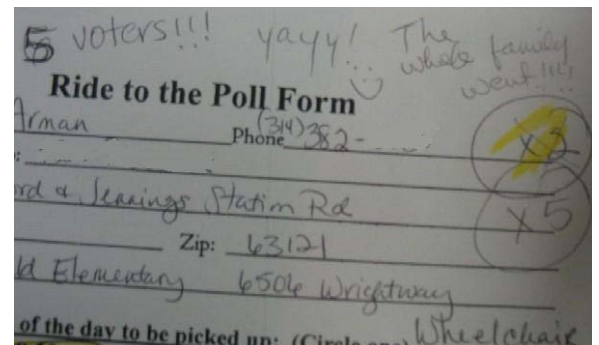 5 voters!!! yayy! The
whole family
went!!!!
Ride to the Poll Form
Arman Phone (314) 382-
x3
rd & Jennings Station Rd
x5
Zip: 63121
ld Elementary 6506 Wrightway
of the day to be picked up: (Circle one) Wheelchair